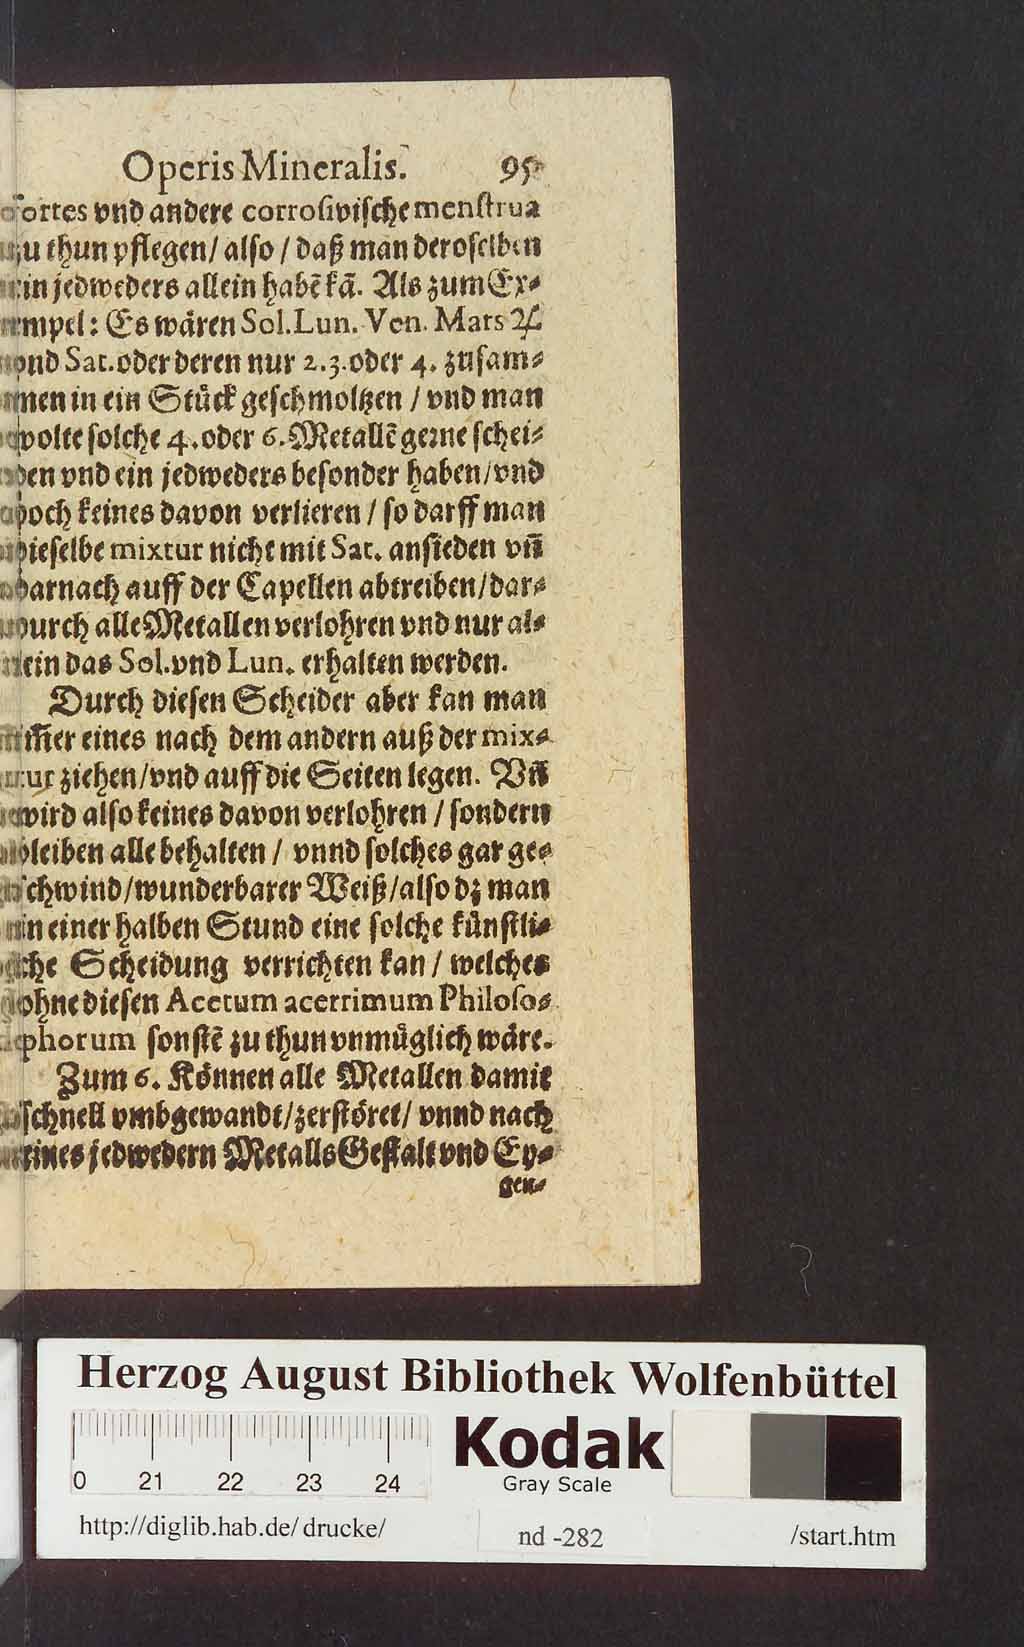 Operis Mineralis. 95
fortes vnd andere corrosivische menstrua
zu thun pflegen / also / daß man deroselben
ein jedweders allein habē kā. Als zum Ex⸗
empel: Es wären Sol. Lun. Ven. Mars ♃
vnd Sat. oder deren nur 2. 3. oder 4. zusam⸗
men in ein Stück geschmoltzen / vnd man
wolte solche 4. oder 6. Metallē gerne schei⸗
den vnd ein jedweders besonder haben / vnd
doch keines davon verlieren / so darff man
dieselbe mixtur nicht mit Sat. ansieden vñ
darnach auff der Capellen abtreiben / dar⸗
durch alle Metallen verlohren vnd nur al⸗
lein das Sol. vnd Lun. erhalten werden.
Durch diesen Scheider aber kan man
im̄er eines nach dem andern auß der mix⸗
tur ziehen / vnd auff die Seiten legen. Vñ
wird also keines davon verlohren / sondern
bleiben alle behalten / vnnd solches gar ge⸗
schwind / wunderbarer Weiß / also dz man
in einer halben Stund eine solche künstli⸗
che Scheidung verrichten kan / welches
ohne diesen Acetum acerrimum Philoso⸗
phorum sonstē zu thun vnmüglich wäre.
Zum 6. Können alle Metallen damit
schnell vmbgewandt / zerstöret / vnnd nach
eines jedwedern Metalls Gestalt vnd Ey⸗
gen⸗
Herzog August Bibliothek Wolfenbüttel
0 21 22 23 24
Kodak
Gray Scale
http://diglib.hab.de/drucke/ nd -282 /start.htm